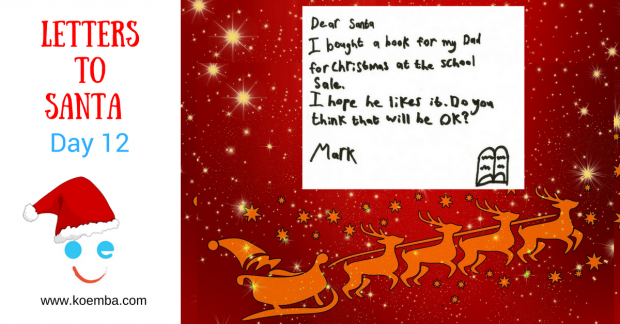 LETTERS
TO
SANTA
Day 12
www.koemba.com
Dear Santa
I bought a book for my Dad
for Christmas at the school
Sale.
I hope he likes it. Do you
think that will be OK?
Mark